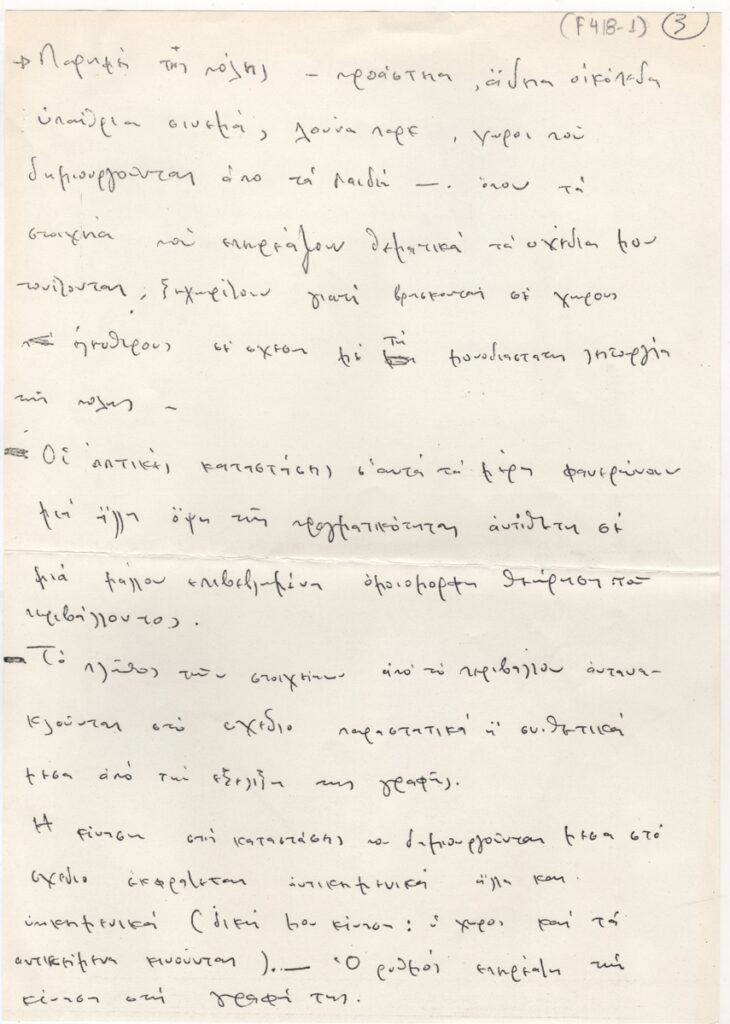 (F418-1) 3
→ Παρυφή τῆς πόλης – προάστεια, ἄδεια οἰκόπεδα
ὑπαίθρια σινεμά, λούνα παρκ, χωροι πού
δημιουργοῦνται ἀπο τά παιδιά —. ὅπου τά
στοιχεῖα πού επηρεάζουν θεματικά τά σχέδια μου
τονίζονται, ξεχωρίζουν γιατί βρισκονται σέ χωρους
ἐλευθερους σέ σχεση μέ τή μονοδιαστατη λειτουργία
τῆς πολης –
Οἱ ὀπτικές καταστάσεις σ' αυτά τά μέρη φανερώνουν
μιά ἄλλη ὄψη τῆς πραγματικότητας ἀντίθετη σέ
μιά μᾶλλον επιβεβλημένα ὁμοιομορφη θεώρηση τοῦ
περιβάλλοντος.
Τό πλῆθος τῶν στοιχείων ἀπό τό περιβαλλον ἀντανα-
κλοῦνται στό σχέδιο παραστατικά ἤ συνθετικά
μεσα ἀπό τήν εξέλιξη της γραφῆς.
Η κίνηση στή καταστάσεις που δημιουργοῦνται μεσα στό
σχεδιο ἐκφράζεται ἀντικειμενικά ἄλλα και
ὑποκειμενικά (δική μου κίνηση: ὁ χωρος καί τά
αντικείμενα κινοῦνται). — Ὁ ρυθμός επηρεάζει τήν
κίνηση στή γραφή της.